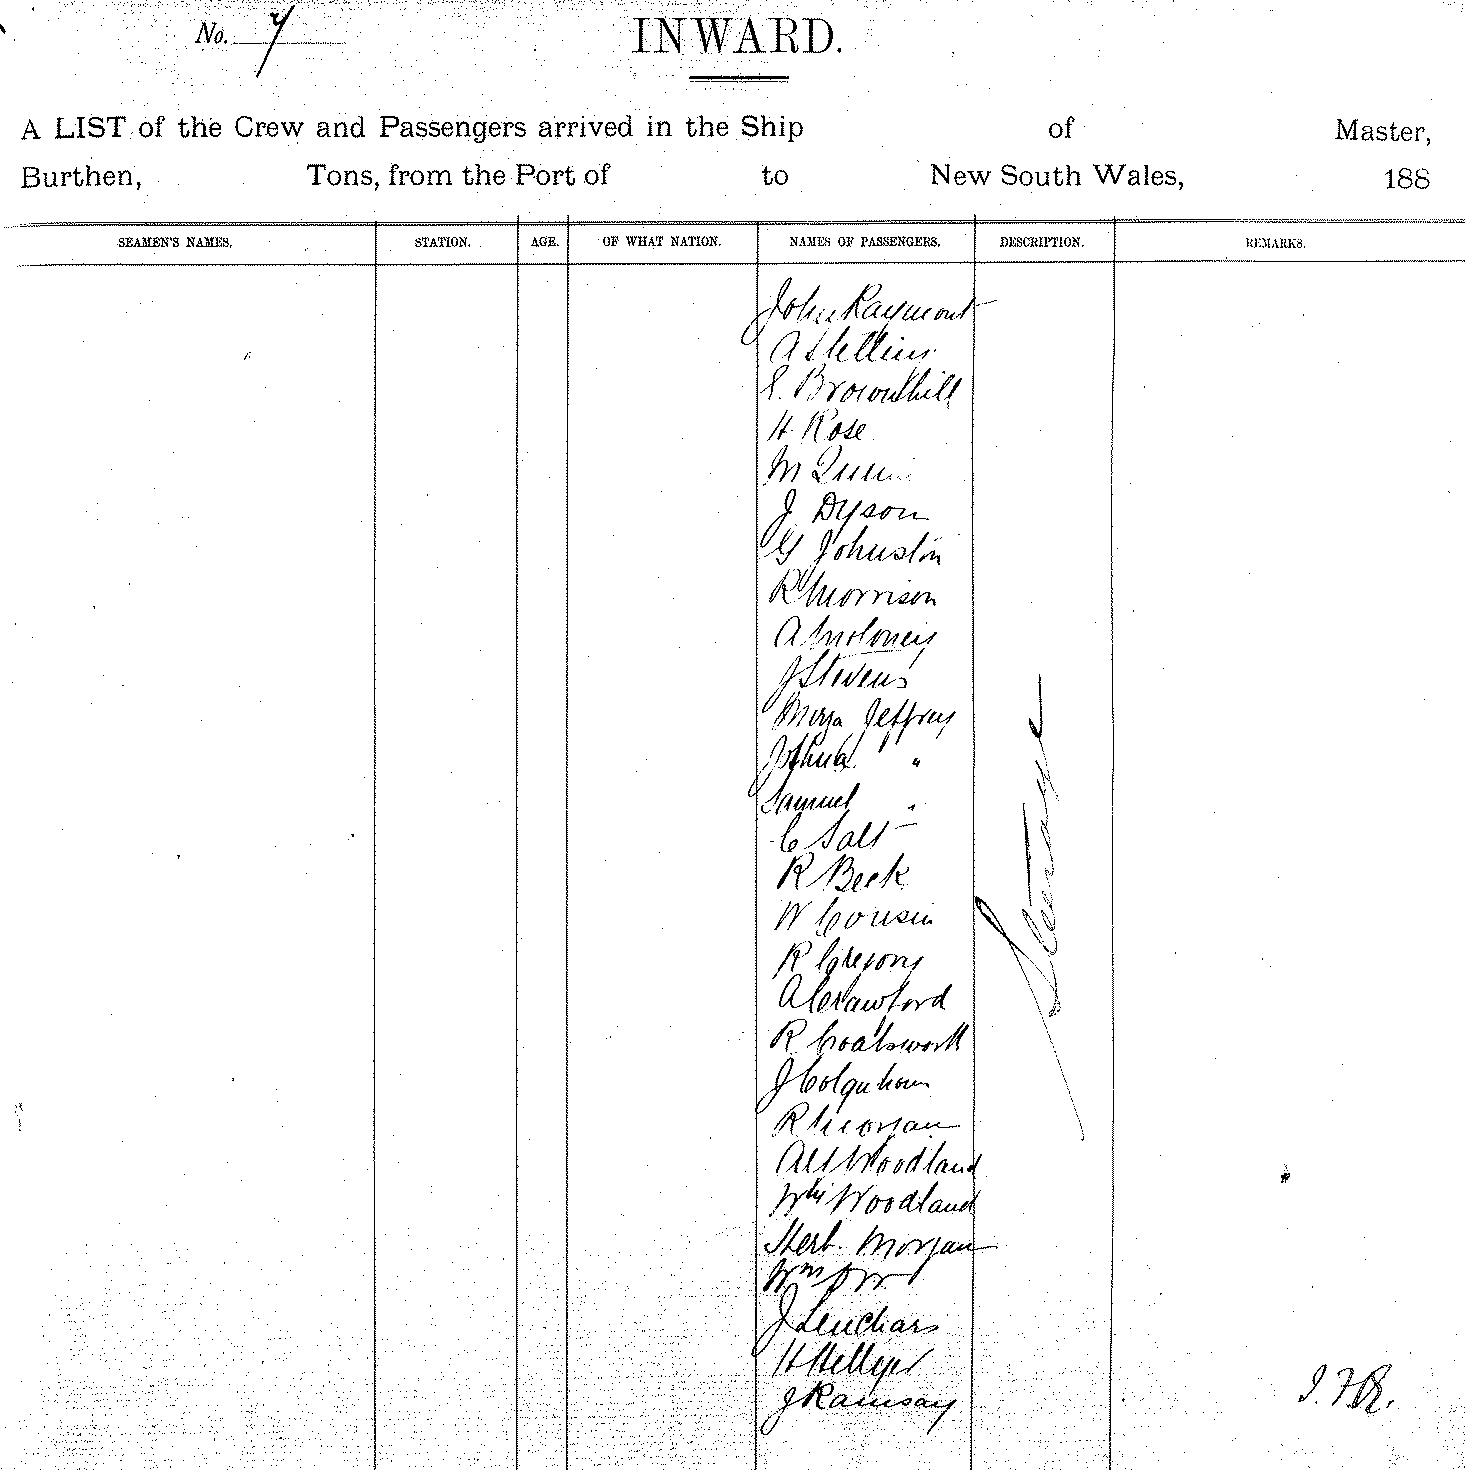 No. 7
INWARD.
A LIST of the Crew and Passengers arrived in the Ship of Master,
Burthen, Tons, from the Port of to New South Wales, 188
SEAMEN'S NAMES. STATION. AGE. OF WHAT NATION. NAMES OF PASSENGERS. DESCRIPTION. REMARKS.
John Raymont
A
S. Brownhill
H. Rose
M Quinn
J Dyson
G Johnston
R Morrison
A Moloney
J Stevens
Jeffrey
Joshua "
Samuel "
C Salt
R Beck
W Cousin
R Gregory
A Crawford
R Coatsworth
J Colquhoun
R Morgan
Alf Woodland
Wm Woodland
Herb. Morgan
Wm Orr
J Leuchars
H Hellyer
J Ramsay
Steerage